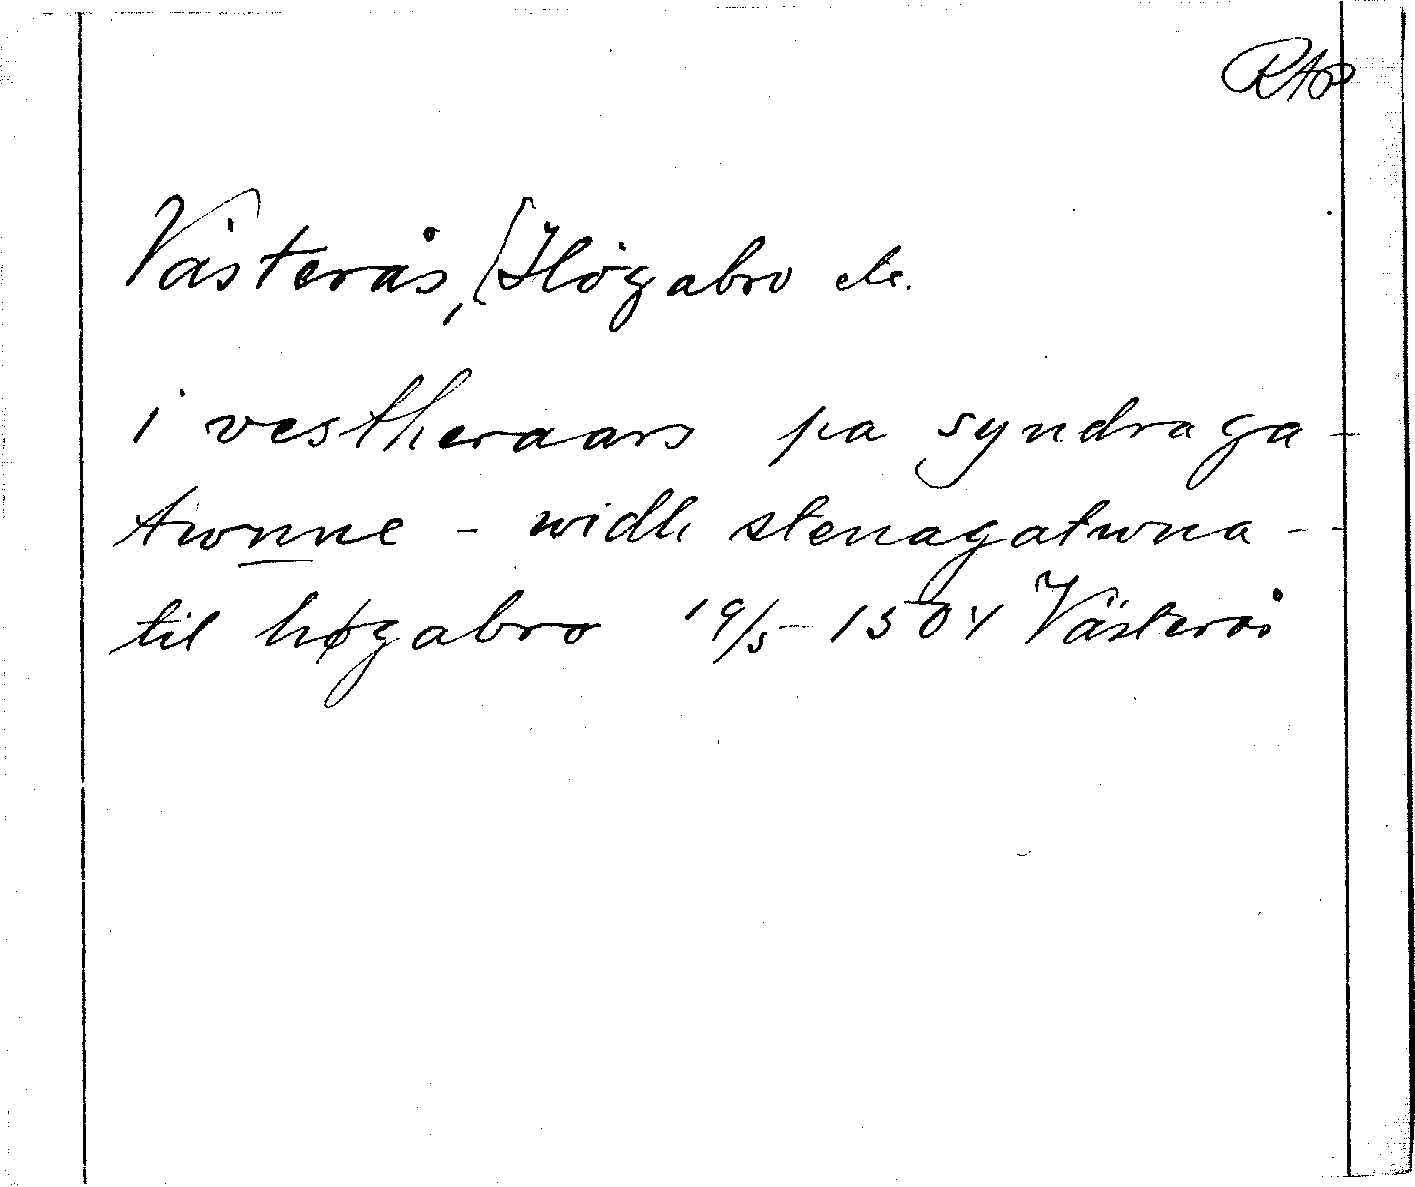 RAP
Västerås, [Högabro etc.
i vestheraars pa syndraga-
twnne - widh stenagatwna --
til høgabro 19/5 1504 Västerås